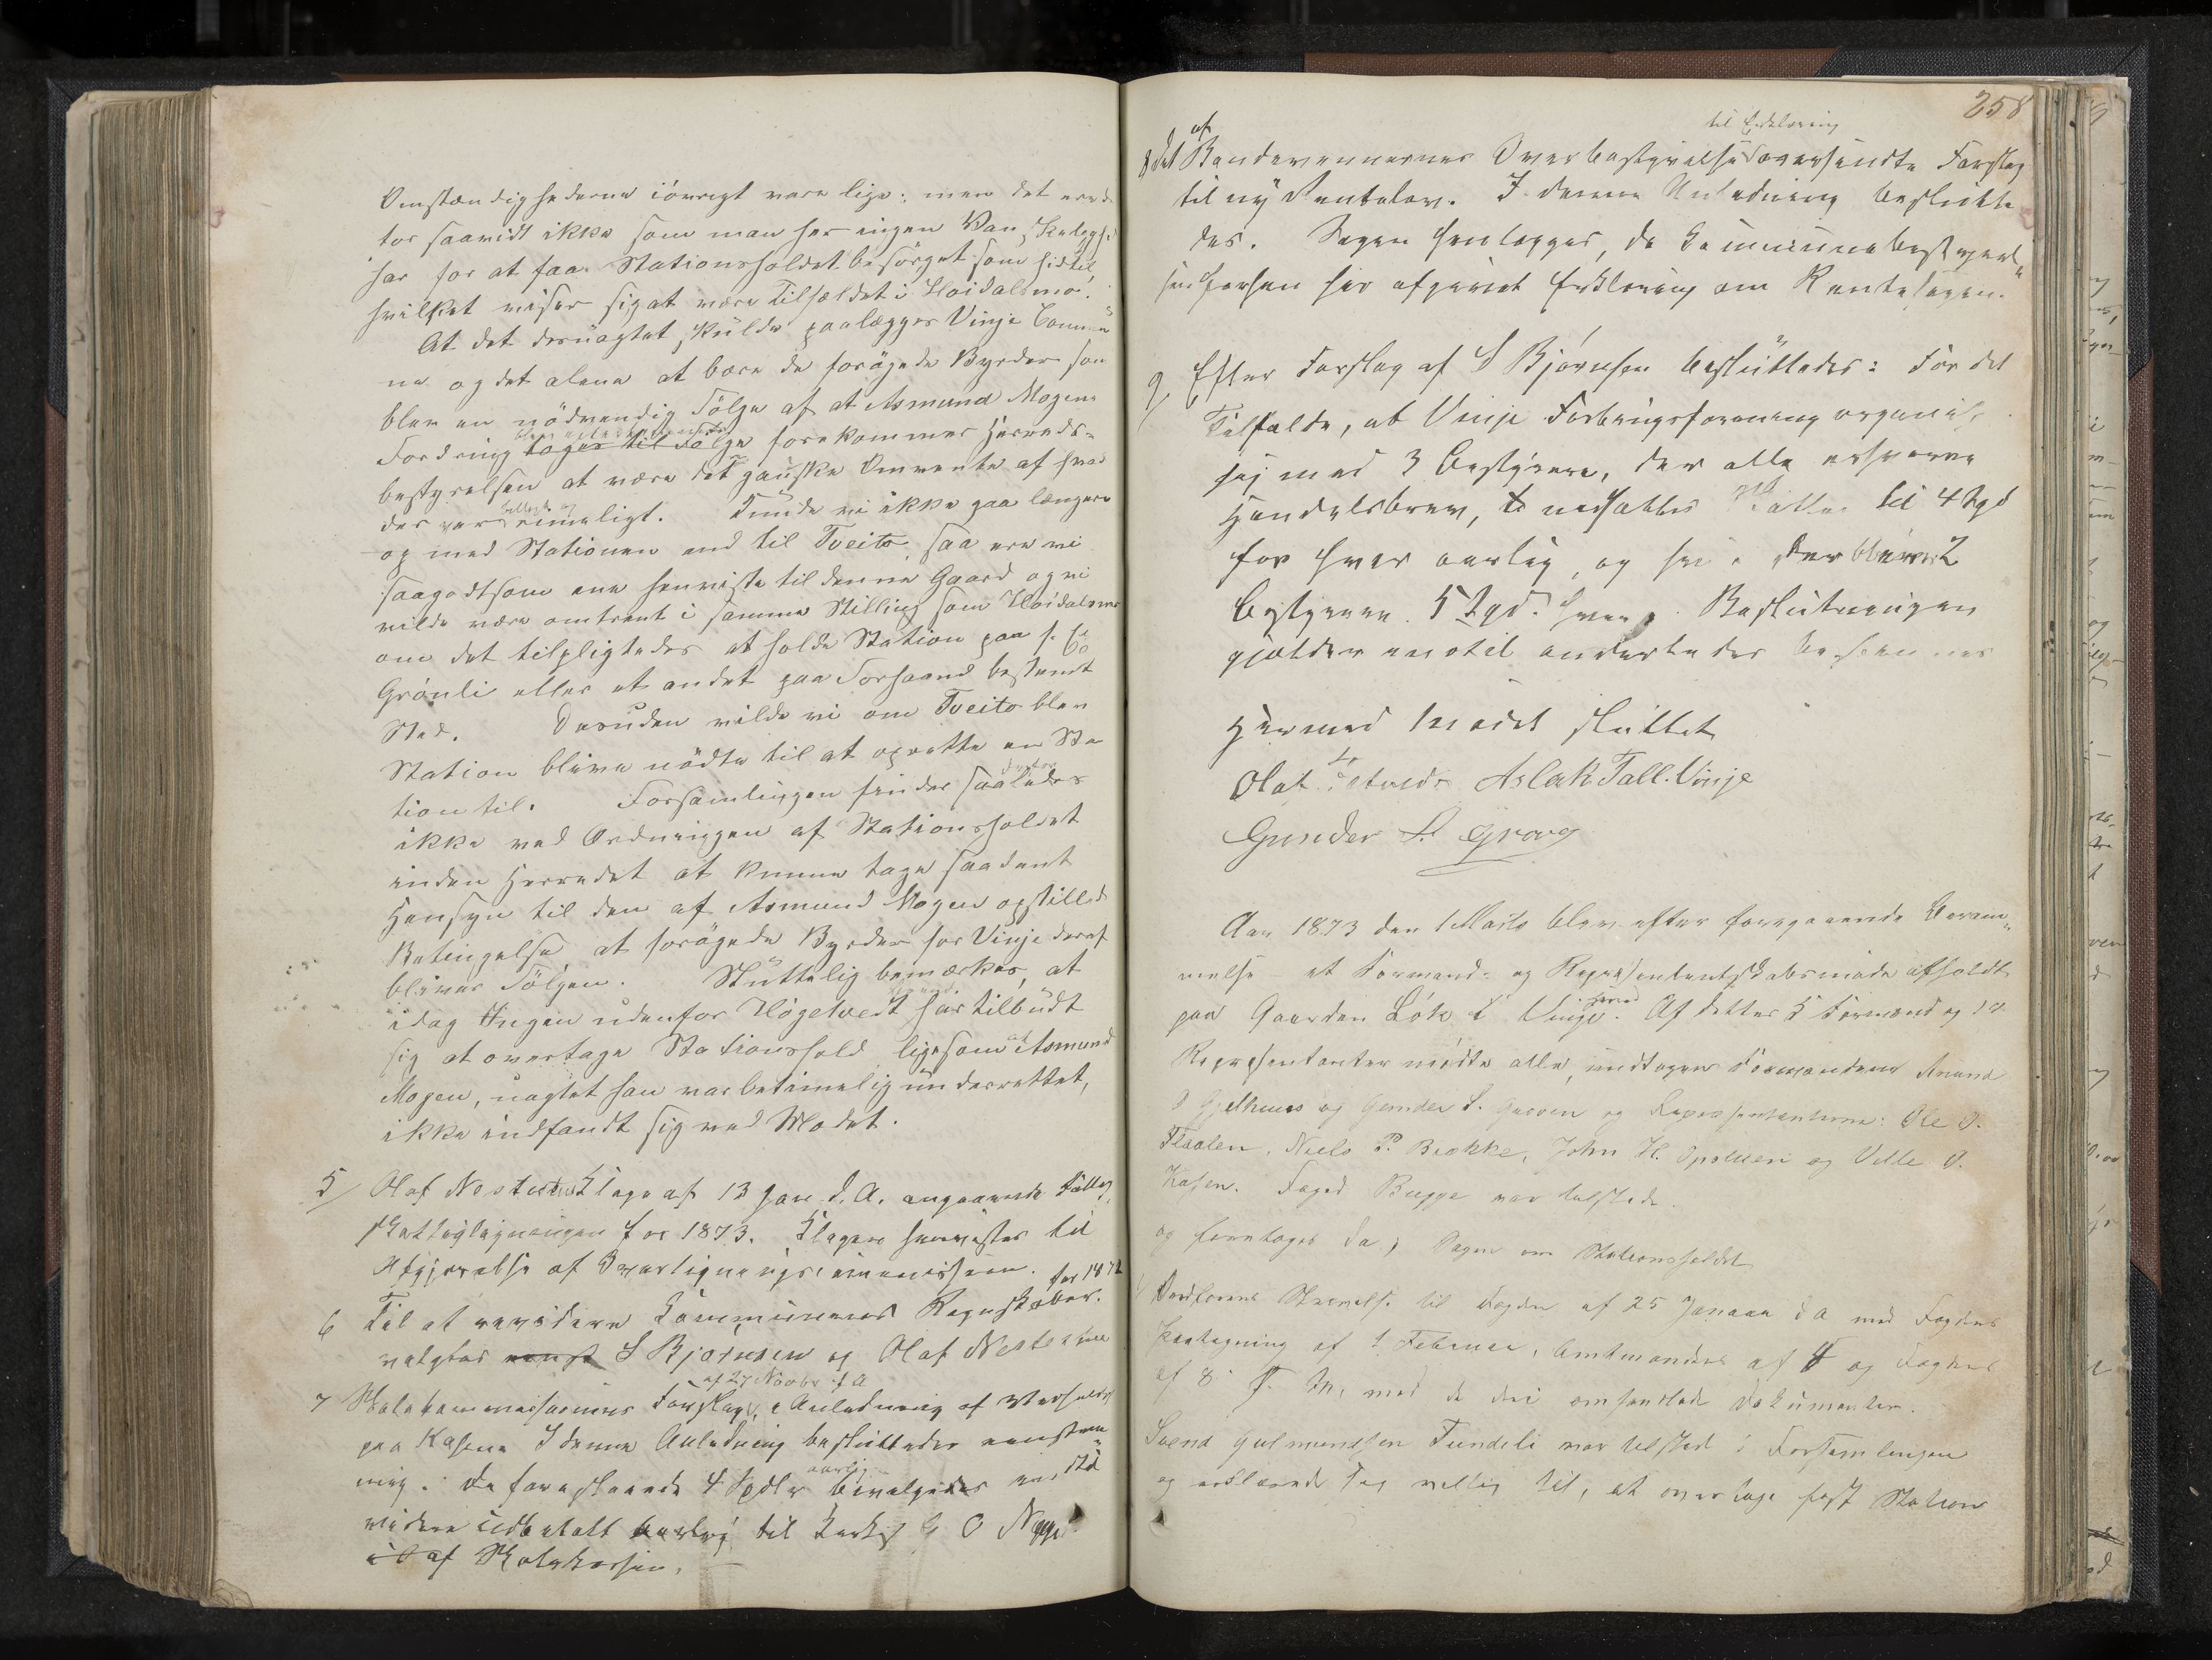 Omstændighederne iövrigt vare lige; men det ere de
tos saavidt ikke som man her ingen Vanskelighed
har for at faa Stationsholdet besörget som hidtil,
hvilket viser sig at være Tilfældet i Höidalsmo.
At det desuagtet skulde paalægges Vinje Commu
ne og det alene at bære de forögede Byrder som
blev en nödvendig Fölge af at Asmund Mogens
Fordring toges til Fölge forekommer Herreds-
bestyrelsen at være det ganske Omvendte af hvad
der var billigt og rimeligt. Kunde vi ikke gaa længere
op med Stationen end til Tveito, saa ere vi
saagodtsom ene henviste til denne Gaard og vi
vilde være omtrent i samme Stilling som Höidalsmo
om det tilpligtedes at holde Station paa f. Ex
Grönli eller et andet paa Forhaand bestemt
Sted. Desuden vilde vi om Tveito blev
Station blive nödte til at oprette en Sta
tion til. Forsamlingen finder saaledes
ikke ved Ordningen af Stationsholdet
inden Herredet at kunne tage saadant
Hensyn til den af Asmund Mogen opstillede
Betingelse, at forögede Byrder for Vinje deraf
bliver Fölgen. Sluttelig bemærkes, at
idag Ingen udenfor Högetvedt har tilbudt
sig at overtage Stationshold ligesom at Asmund
Mogen, uagtet han var betimelig underrettet,
ikke indfandt sig ved Mödet.
5/ Olaf Nestestus Klage af 13 Jan. d. A. angaaende
Skatteligningen for 1873. Klagen henvistes til
Afgjörelse af Overligningscommissionen.
6 Til at revidere Kommunens Regnskaber for 1872
valgtes S Bjørnsen og Olaf Nestestue
af 27 Novbr f A
7 Skolekommissionens Forslag i Anledning af
paa Kasene I denne Anledning besluttedes eenstem
mig: De foreslaaede 4 Spdlr aarlig bevilgedes ind til
videre udbetalt til G O
af Skolekassen.
258
til Erklæring
8 Det af Bondevennernes Overbestyrelse oversendte Forslag
til ny Rentelov. I denne Anledning besluttе
des. Sagen henlægges, da Communebestyrel-
sen forhen har afgivet Erklæring om Rentesagen.
9/ Efter Forslag af S Bjørnsen besluttedes: For det
Tilfælde, at Vinje Forbrugsforening organis
sig med 3 Bestyrere, der alle erhverve
Handelsbrev, nedsattes Skatten til 4 Spd
for hver aarlig, og hvis der bliver 2
Bestyrere 5 Spd. hver. Beslutningen
gjælder indtil anderledes bestemmes
Hermed Mödet sluttet
Olaf Aslak Tall. Vinje
Gunder S. Grov
Aar 1873 den 1 Marts blev efter foregaaende Beram-
melse et Formand- og Repræsentantskabsmöde afholdt
paa Gaarden Lök i Vinje Herred. Af dettes 5 Formænd og 12
Repræsentanter mödte alle, undtagen Formændene Anund
O Gjelhuus og Gunder S. Groven og Repræsentanterne: Ole O.
Flaaten, Niels P. Brokke, John H. og Ville O.
Kasen. Foged Bugge var tilstede.
og foretoges da; Sagen om Stationsholdet
1/ Ordförers Skrivelse til Fogden af 25 Januar d A med Fogdens
Paategning af 1 Februar, Amtmandens af 4 og Fogdens
af 8 f. M, med de deri omhandlede Dokumenter.
Svend Gulmundsen Fundeli var tilsted i Forsamlingen
og erklærede sig villig til, at overtage fast Station